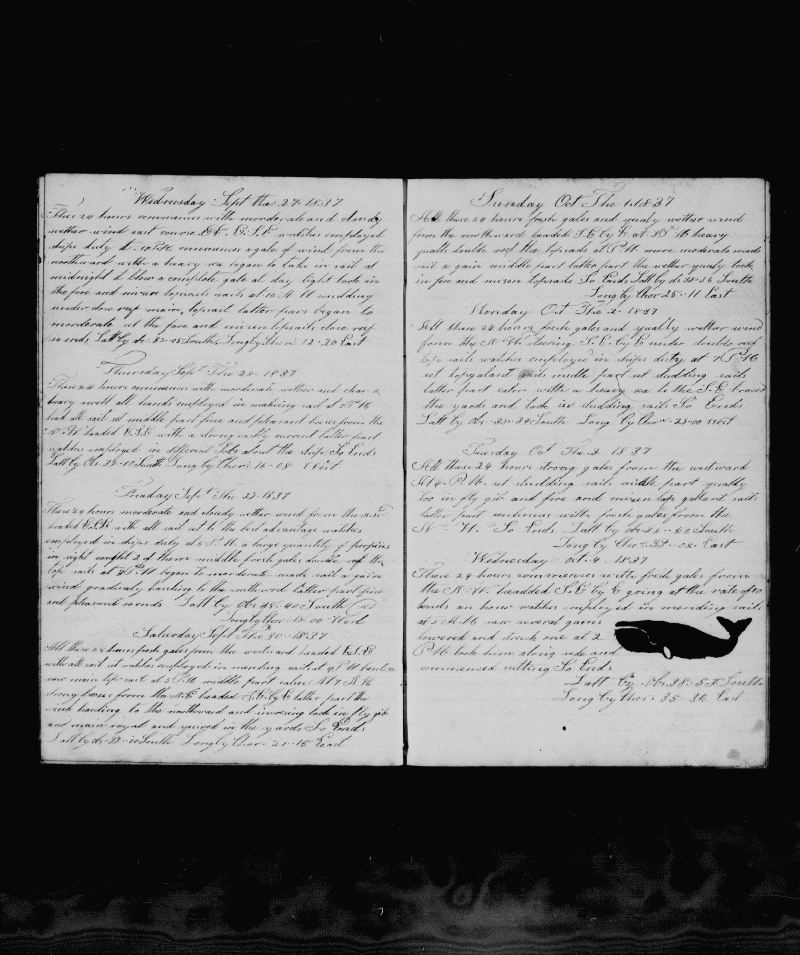 Wednesday Sept the 27 1837
These 24 hours commences with morderate and cloudy
wether wind east course E.S.E watches employed
ships duty commences a gale of wind from the
northward with a heavy sea began to take in sail at
midnight it blew a complete gale at day light took in
the fore and mizen topsails sails at 10 A M scudding
under close reef main topsail latter part began to
morderate set the fore and mizen topsails close reef
so ends Latt by Longby Chor 12-20 East
Thursday Sept The 28 1837
These 24 hours commences with morderate wether and
heavy swell all hands employed in making sail at P M
had all sail set middle part fine and pleasant from the
N W headed E.S.E with a strong current latter part
watches employed in different Jobs about the ship So Ends
Latt by Obs Longby Chor 16-08 West
Friday Sept The 29 1837
These 24 hours morderate and cloudy wether wind from the
headed E.S.E with all sail set to the best advantage watches
employed in ships duty at P. M. a large quantity of porpoises
in sight caught 2 of them middle fresh gales double reef the
top sails at P M began to morderate made sail a gain
wind gradualy hauling to the southward latter part fine
and pleasant so ends Latt by Obs 38-40 South
Longby Chor 18-00
Saturday Sept The 30 1837
All these 24 hours fresh gales from the westward headed E.S.E
with all sail set watches employed in mending sails at P M
main top sail at P M middle part calm At 7 A M
from the headed S.E. by E latter part the
wind hauling to the northward and took in fly gib
and main royal and in the yards So Ends
Latt by South Longby Chor 21-15 East
Sunday Oct The 1 1837
All these 24 hours fresh gales and squaly wether wind
from the northward headed S.E by E At P. M. heavy
squalls double reef the topsails at P M more moderate made
sail a gain middle part latter part the wether squaly took
in fore and mizen topsails So Ends Latt by Obs 38-36 South
Longby Chor 25-11 East
Monday Oct The 2 1837
All these 24 hours fresh gales and squally wether wind
from the N.W. steering S.E. by E under double reef
top sails watches employed in ships duty at P M
set topgalant sails middle part set studding sails
latter part calm with a heavy sea to the S.E. braced
the yards and took in studding sails So Ends
Latt by Obs South Long by Chor 28-00
Tuesday Oct The 3 1837
All these 24 hours strong gales from the westward
At 4 P. M. set studding sails middle part squally
too in fly gib and fore and mizen tope gallant sails
latter part continues with fresh gales from the
N. W. So Ends Latt by Obs South
Long by Chor East
Wednesday Oct 4 1837
These 24 hours commences with fresh gales from
the N. W. headded S.E by E going at the rate of 10
knots an hour watches employed in mending sails
at A M saw several games
lowered and struck one at 2
P. M. took him along side and
commenced cutting So Ends
Latt by Obs 38-57 South
Long by Chor 35-36 East